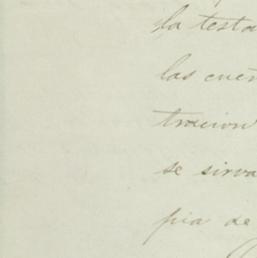 la testa
las cuen
tracion
se sirva
pia de